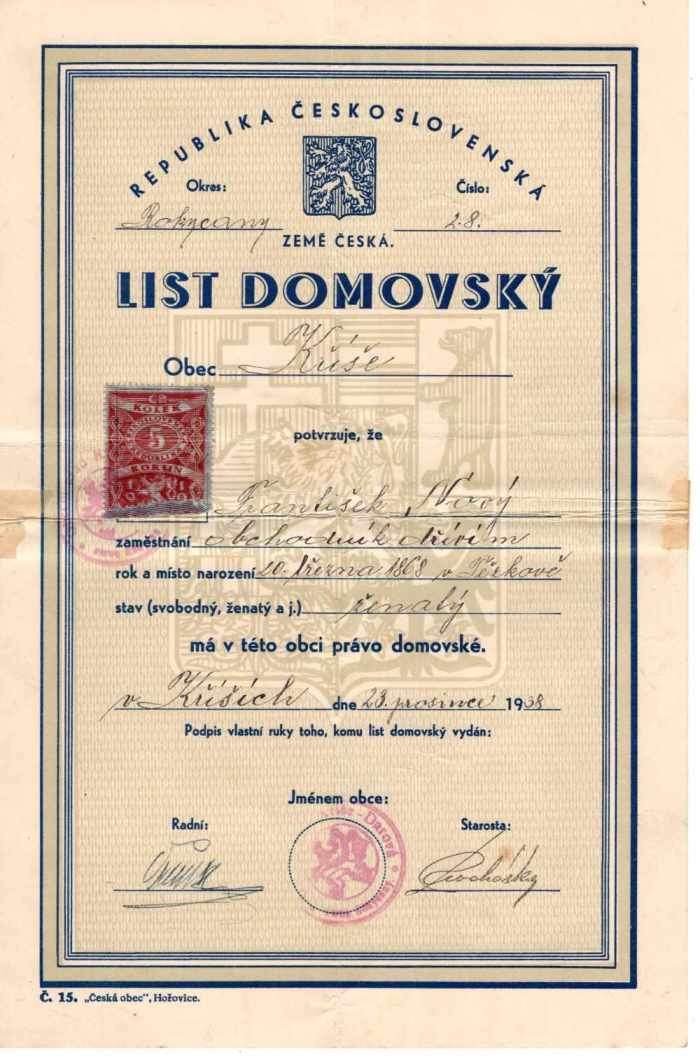 REPUBLIKA ČESKOSLOVENSKÁ
Okres: Rokycany
Číslo: 28.
ZEMĚ ČESKÁ.
LIST DOMOVSKÝ
Obec Kříše
potvrzuje, že
KOLEK
5
KORUN
František Nový
zaměstnání obchodník dřívím
rok a místo narození 20. března 1868 v Těškově
stav (svobodný, ženatý a j.) ženatý
má v této obci právo domovské.
v Kříších dne 23. prosince 1938
Podpis vlastní ruky toho, komu list domovský vydán:
Jménem obce:
Radní:
Starosta:
Č. 15. „Česká obec", Hořovice.